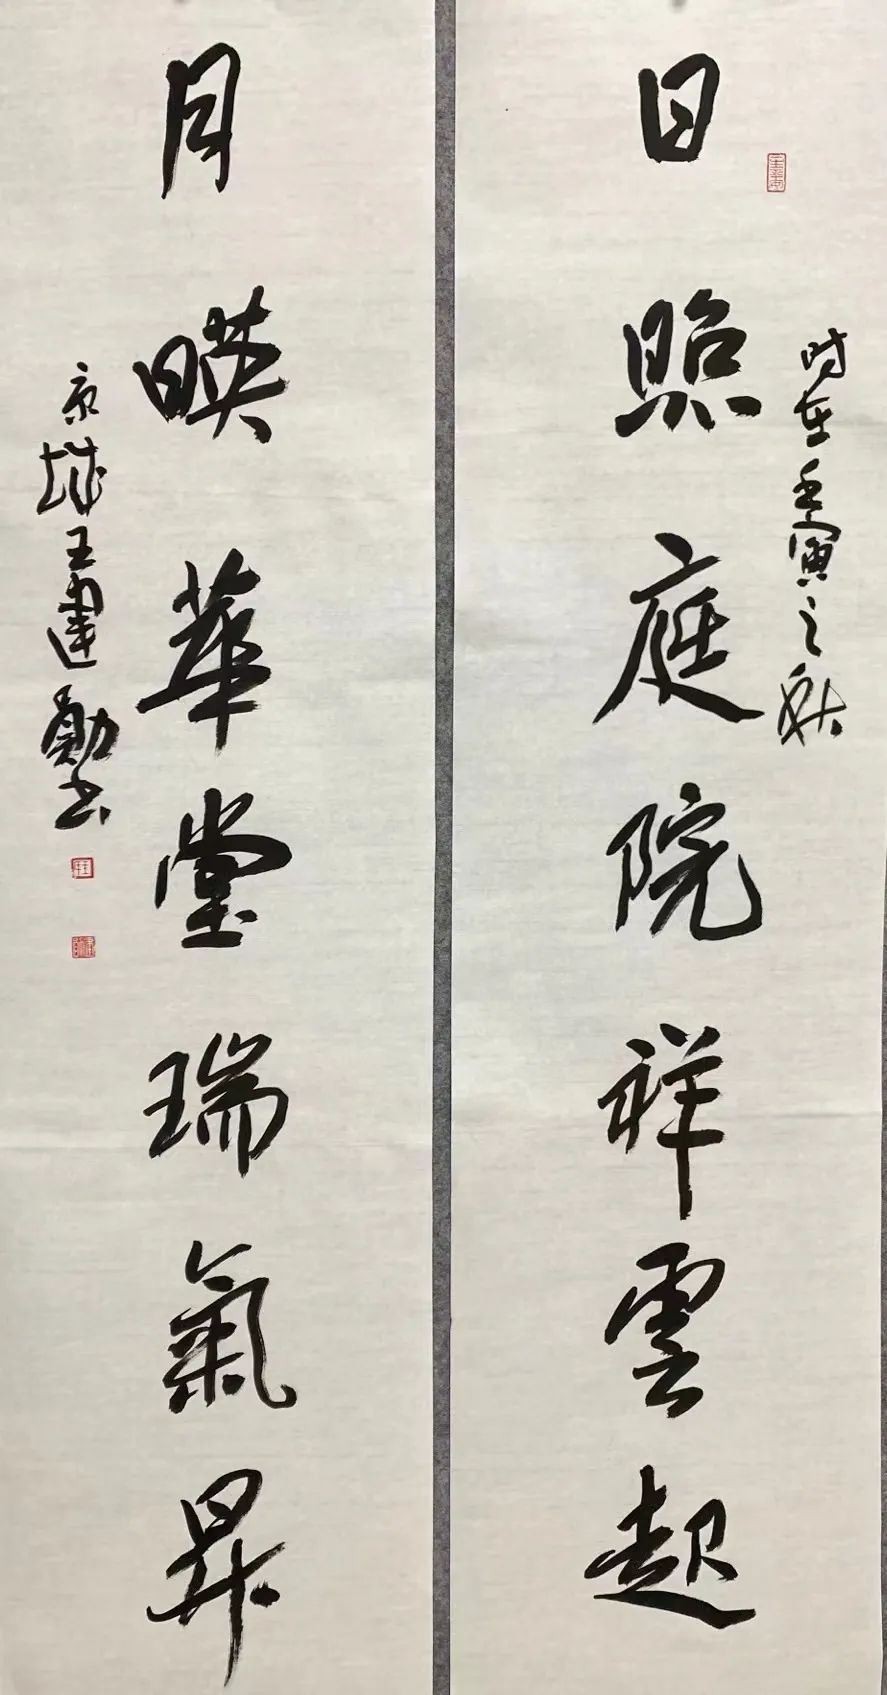 日照庭院祥雲起
時在壬寅之秋
月暎華堂瑞氣昇
京城王建勳書